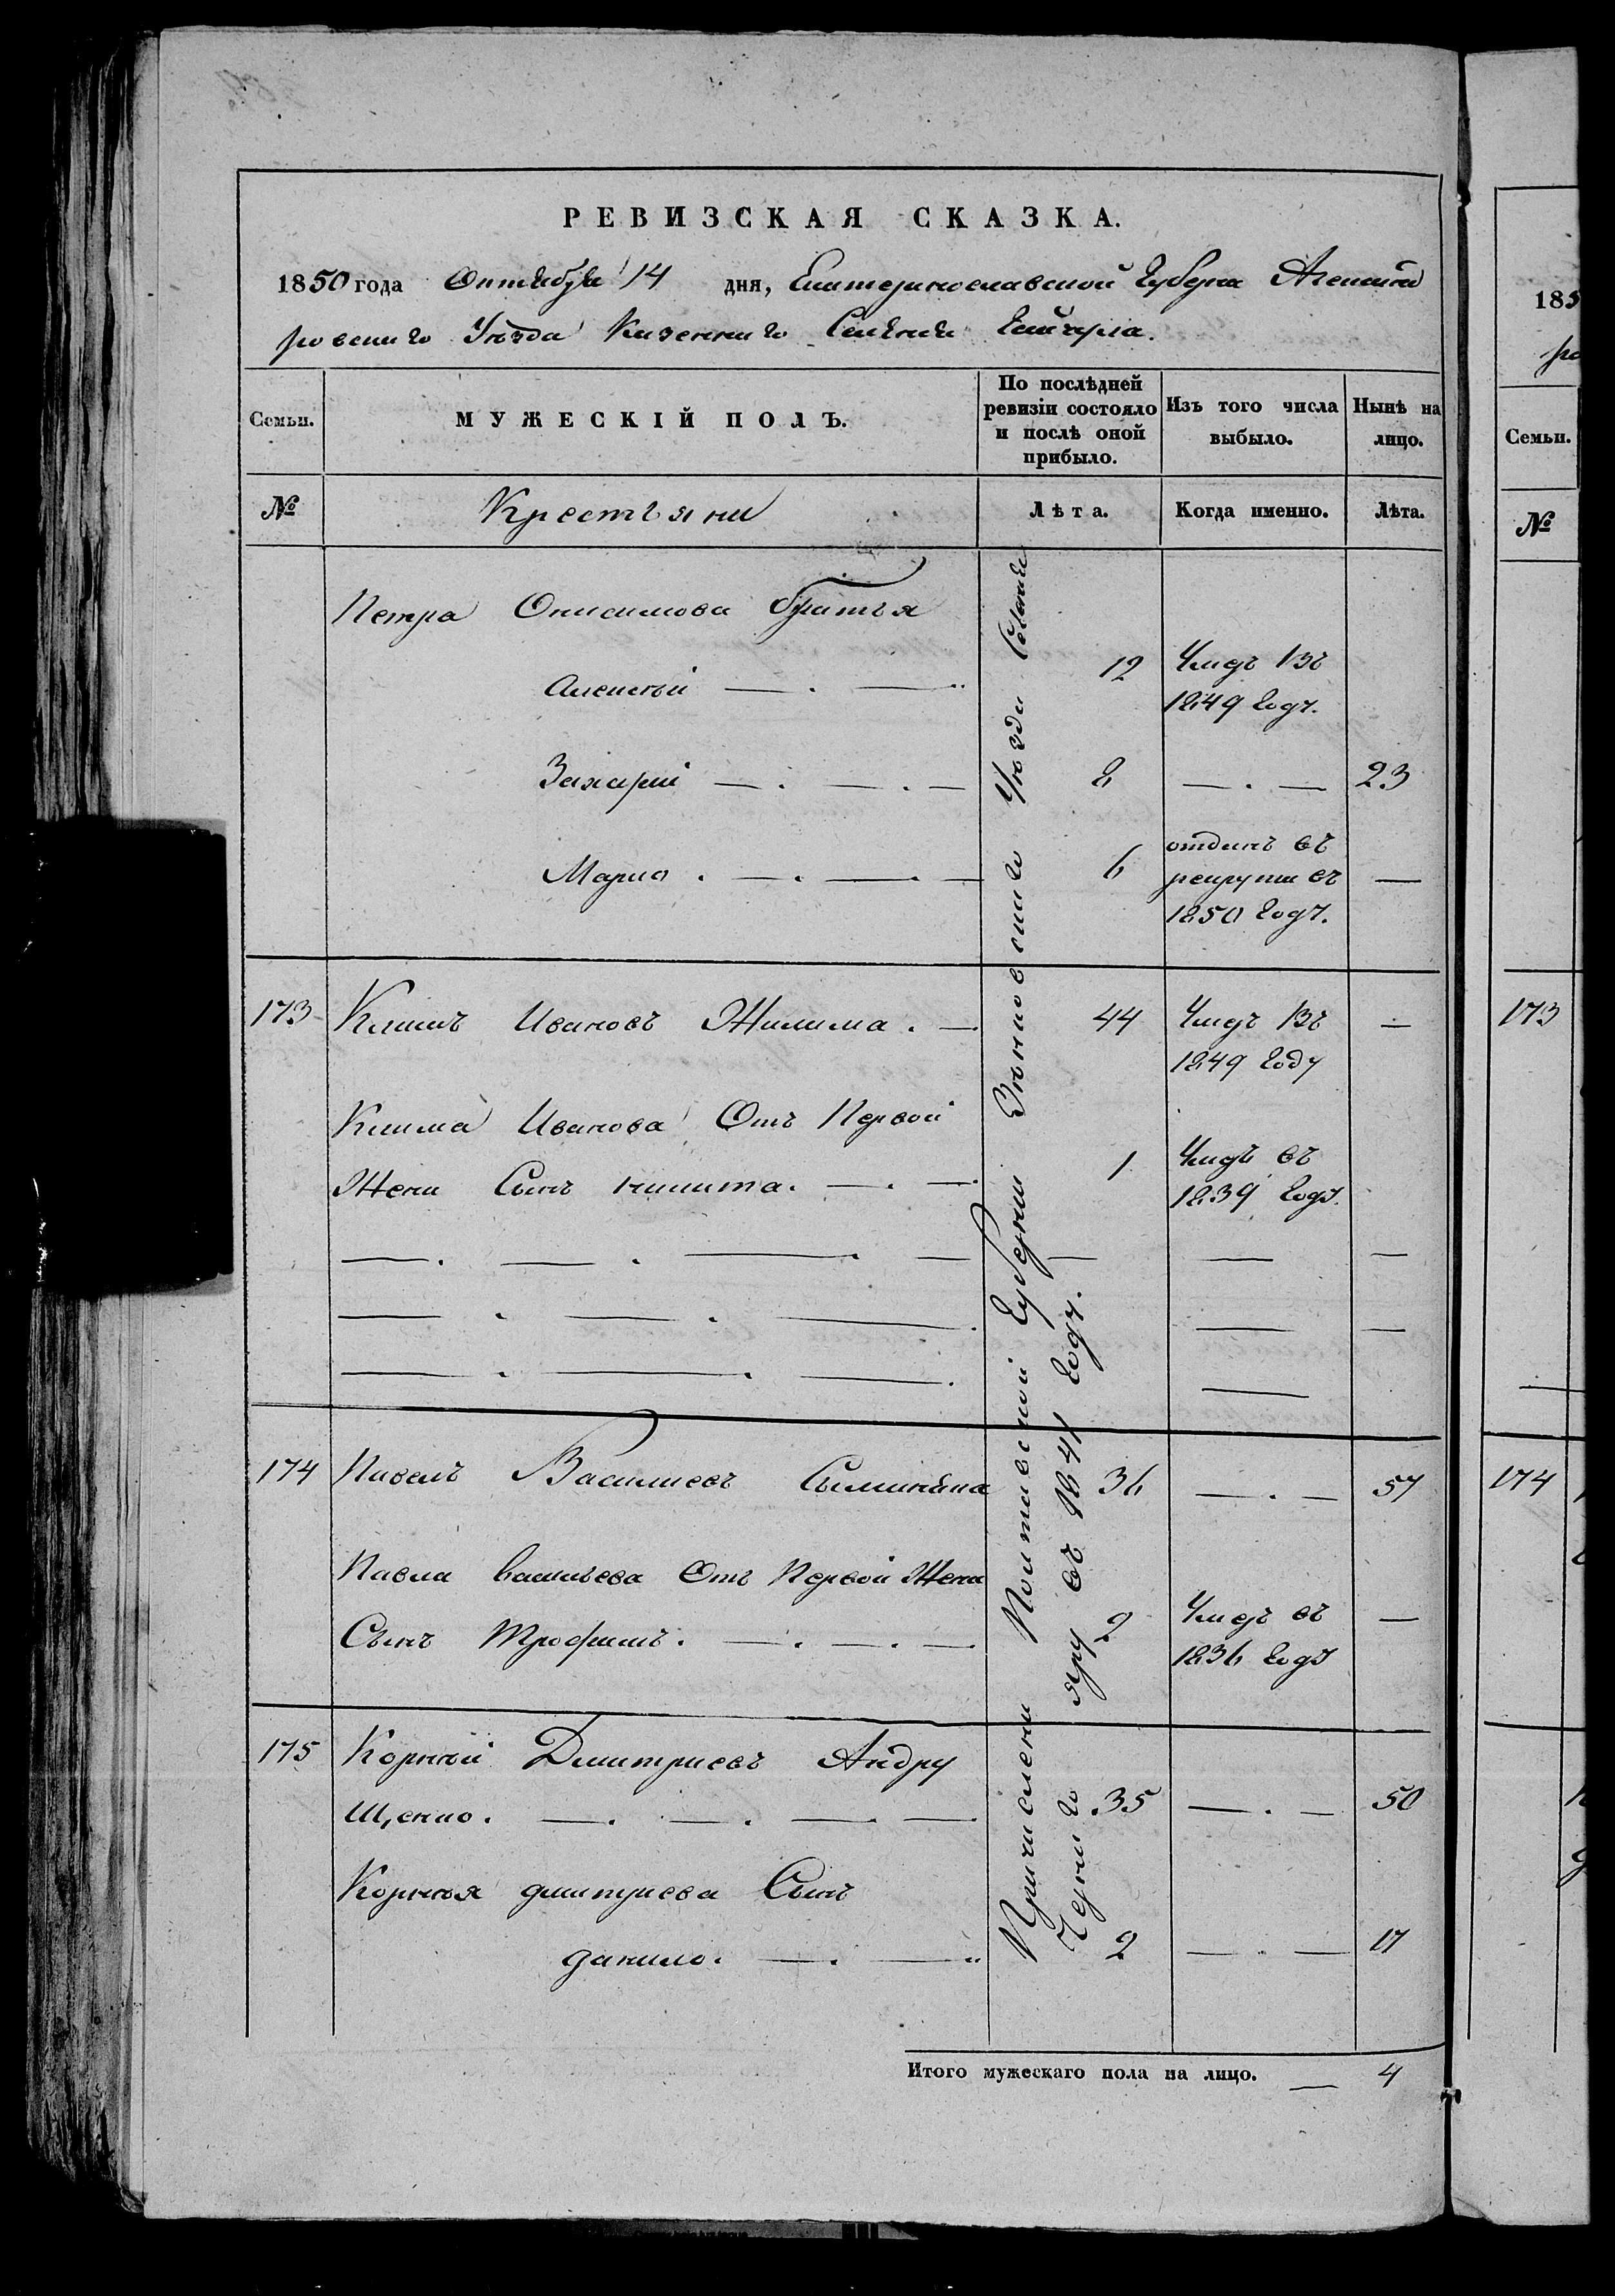 РЕВИЗСКАЯ СКАЗКА.
1850 года Октября 14 дня, Екатеринославской Губерни Александ
ровскаго Уѣзда Казеннаго Селенія Гайчула.
Семьи.
МУЖЕСКІЙ ПОЛЪ.
По послѣдней ревизіи состояло и послѣ оной прибыло.
Изъ того числа выбыло.
Нынѣ на лицо.
№
Крестьяни
Лѣта.
Когда именно.
Лѣта.
Петра Онисимова братья
Алексѣй 12 Умеръ въ
1849 году.
Захарій 8 23
Марко 6 отданъ въ
рекруты въ
1850 году.
173 Климъ Ивановъ 44 Умеръ въ
1849 году
Клима Иванова Отъ Первой
Жени Сынъ Никита. 1 Умеръ въ
1839 году.
174 Павелъ Василиевъ 36 57
Павла Васильева Отъ Первой Жени
Сынъ Трофимъ. 2 Умеръ въ
1836 году
175 Корнѣй Дмитриевъ Андру
щенко. 35 50
Корнѣя дмитриева Сынъ
данило. 2 17
Причислени Полтавской Губернии Зѣнковскаго Уѣзда Селенія
Чернаго яру въ 1841 году.
Итого мужескаго пола на лицо. 4
185
ро
Семьи.
№
173
174